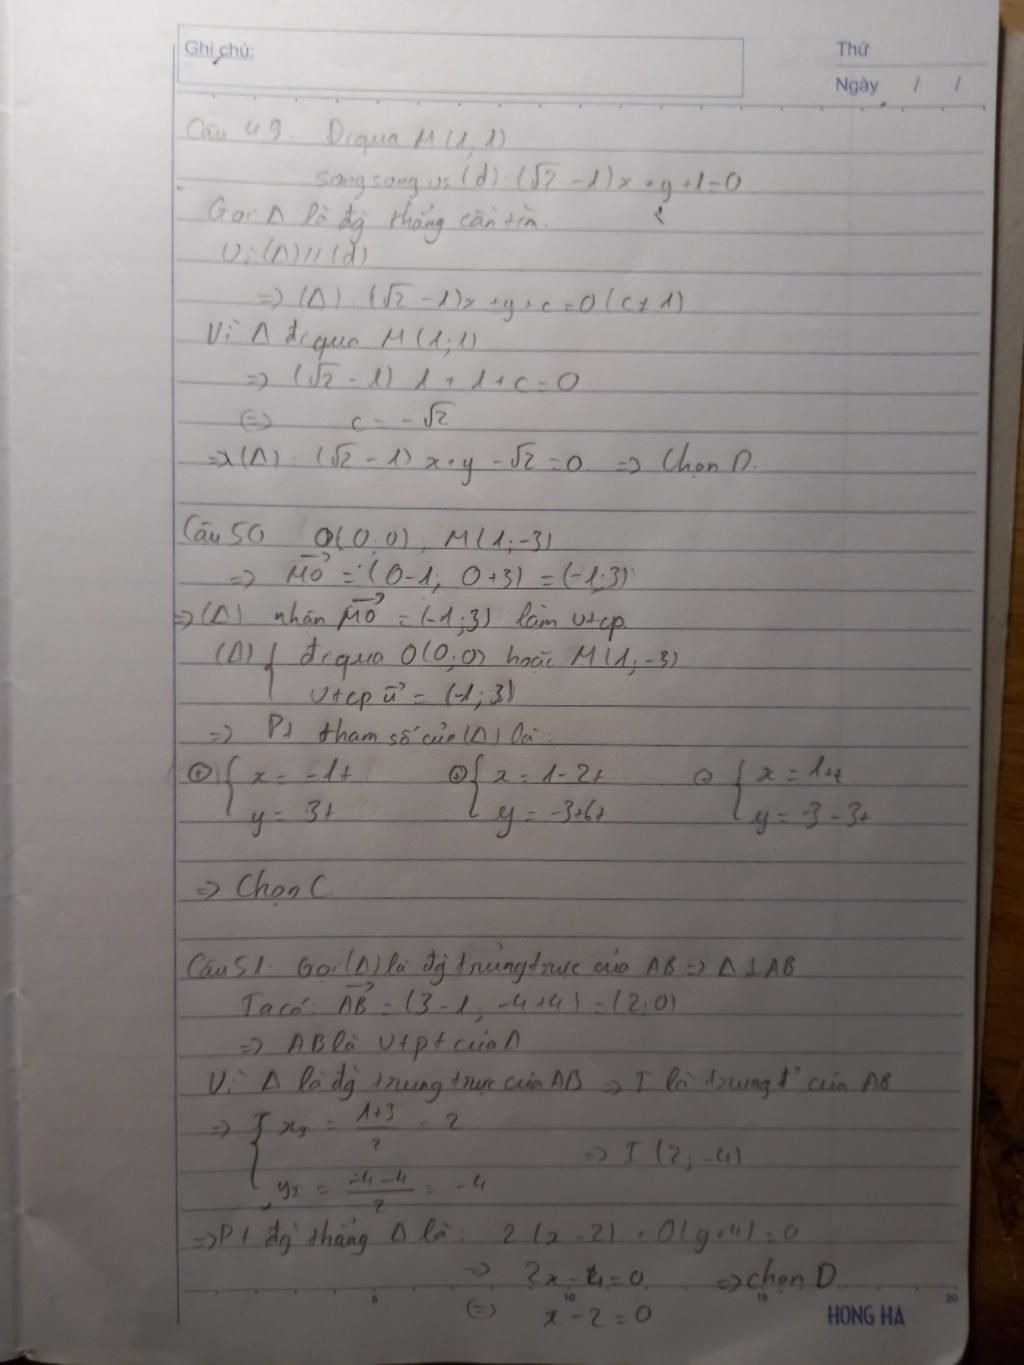 Ghi chú:
Thứ
Ngày / /
Câu 49. Đi qua M(1,1)
song song vs (d): (√2 - 1)x + y + 1 = 0
Gọi Δ là đg thẳng cần tìm.
Vì (Δ) // (d)
=> (Δ): (√2 - 1)x + y + c = 0 (c ≠ 1)
Vì Δ đi qua M(1;1)
=> (√2 - 1) 1 + 1 + c = 0
(=) c = -√2
=> (Δ): (√2 - 1) x + y - √2 = 0. => Chọn D.
Câu 50 O(0;0), M(1;-3)
=> MO⃗ = (0-1; 0+3) = (-1;3)
=> (Δ) nhân MO⃗ = (-1;3) làm vtcp
(Δ) { đi qua O(0;0) hoặc M(1;-3)
vtcp u⃗ = (-1;3)
=> Pt tham số của (Δ) là:
+ { x = -1t + { x = 1-2t { x = 1+t
y = 3t y = -3+6t y = -3-3t
=> Chọn C.
Câu 51. Gọi (Δ) là đg trung trực của AB => Δ ⊥ AB
Ta có: AB⃗ = (3-1; -4+4) = (2;0)
=> AB là vtpt của Δ
Vì Δ là đg trung trực của AB => I là trung đ' của AB
=> { x_I = (1+3)/2 = 2
=> I (2;-4)
y_I = (-4-4)/2 = -4
=> Pt đg thẳng Δ là: 2(x-2) + 0(y+4) = 0
=> 2x - 4 = 0 => chọn D.
5 10 15 20
(=) x - 2 = 0
HONG HA